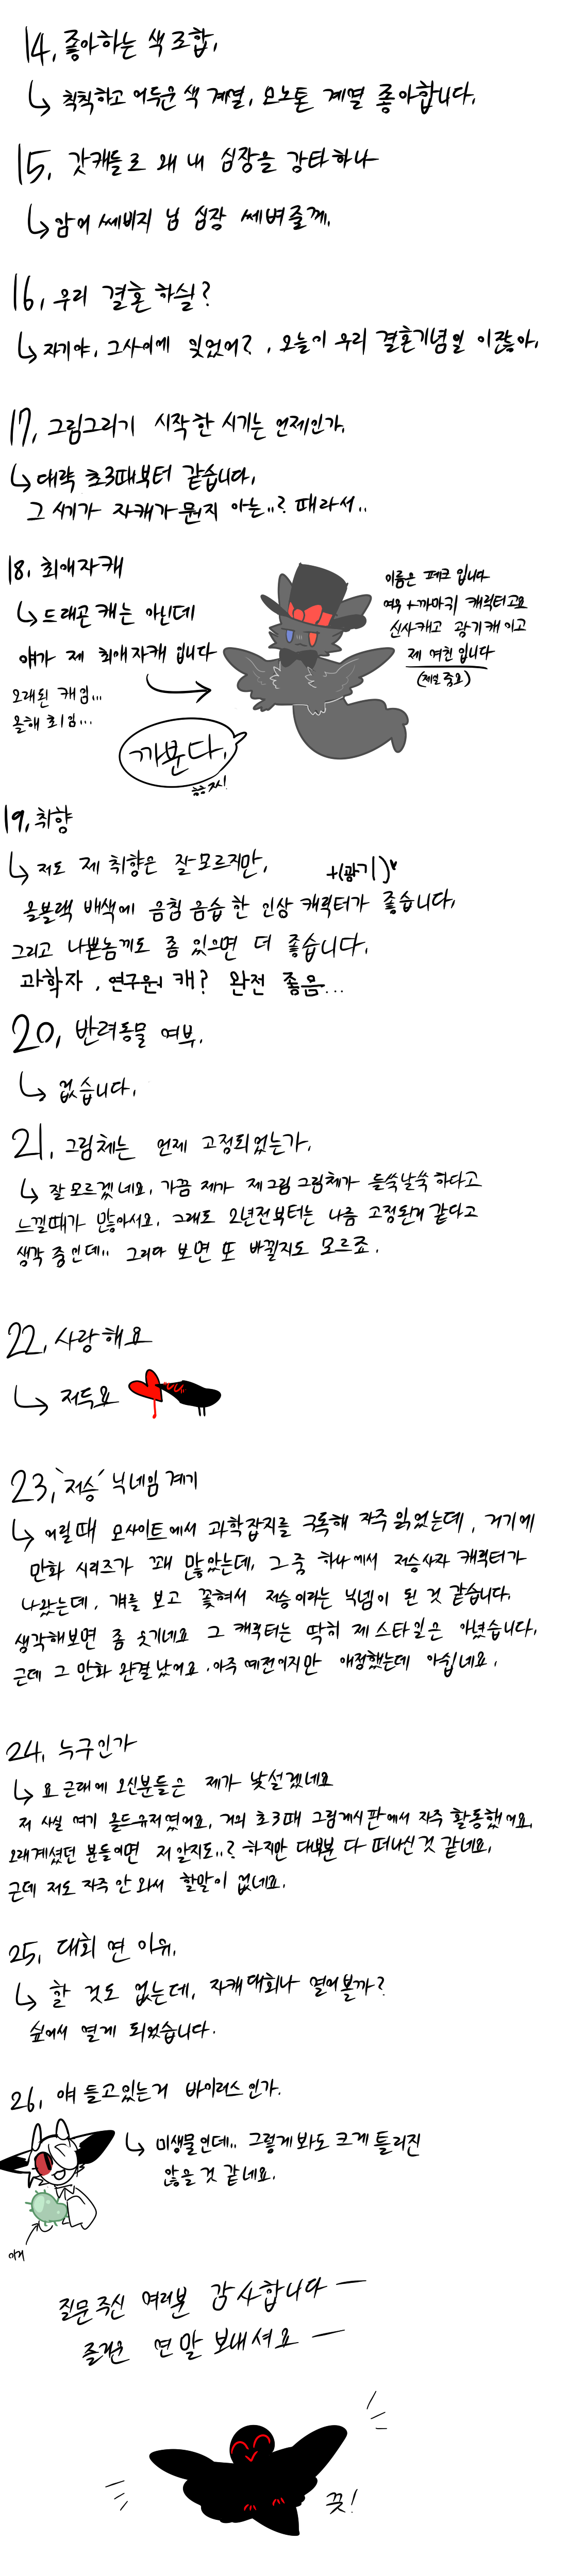 14, 좋아하는 색 조합,
↳ 칙칙하고 어두운 색 계열, 모노톤 계열 좋아합니다,
15, 갓캐들로 왜 내 심장을 강타하나
↳ 감히 쎄비지 님 심장 쎄벼줄께,
16, 우리 결혼하실?
↳ 자기야, 그사이에 잊었어?, 오늘이 우리 결혼기념일 이잖아,
17, 그림그리기 시작한 시기는 언제인가,
↳ 대략 초3때부터 같습니다,
그 시기가 자캐가 뭔지 아는..? 때라서..
18, 최애자캐
↳ 드래곤 캐는 아닌데
얘가 제 최애자캐 입니다
오래된 캐임...
올해 초1임...
이름은 페크 입니다
여우+까마귀 캐릭터고요
신사캐고 광기캐이고
제 여친입니다
(제일 중요)
까분다,
쓰읍!
19, 취향
↳ 저도 제 취향은 잘 모르지만,
+(광기)♥
올블랙 배색에 음침 음습한 인상 캐릭터가 좋습니다,
그리고 나쁜놈끼도 좀 있으면 더 좋습니다,
과학자, 연구원 캐? 완전 좋음...
20, 반려동물 여부,
↳ 없습니다,
21, 그림체는 언제 고정되었는가,
↳ 잘 모르겠네요, 가끔 제가 제그림 그림체가 들쑥날쑥 하다고
느낄때가 많아서요, 그래도 2년전부터는 나름 고정된거 같다고
생각 중인데.. 그러다 보면 또 바뀔지도 모르죠,
22, 사랑해요
↳ 저두요
23, '저승' 닉네임 계기
↳ 어릴때 모사이트에서 과학잡지를 구독해 자주 읽었는데, 거기에
만화 시리즈가 꽤 많았는데, 그 중 하나에서 저승사자 캐릭터가
나왔는데, 걔를 보고 꽂혀서 저승이라는 닉넴이 된 것 같습니다,
생각해보면 좀 웃기네요 그 캐릭터는 딱히 제 스타일은 아녔습니다,
근데 그 만화 완결났어요, 아주 예전이지만 애정했는데 아쉽네요,
24, 누구인가
↳ 요 근래에 오신분들은 제가 낯설겠네요
저 사실 여기 올드유저였어요, 거의 초3때 그림게시판에서 자주 활동했어요,
오래계셨던 분들이면 저 알지도..? 하지만 대부분 다 떠나신것 같네요,
근데 저도 자주 안 와서 할말이 없네요,
25, 대회 연 이유,
↳ 할 것도 없는데, 자캐대회나 열어볼까?
싶어서 열게 되었습니다.
26, 얘 들고있는거 바이러스인가,
↳ 미생물인데.. 그렇게 봐도 크게 틀리진
않을 것 같네요,
이거
질문주신 여러분 감사합니다ㅡ
즐거운 연말 보내셔요ㅡ
끗!